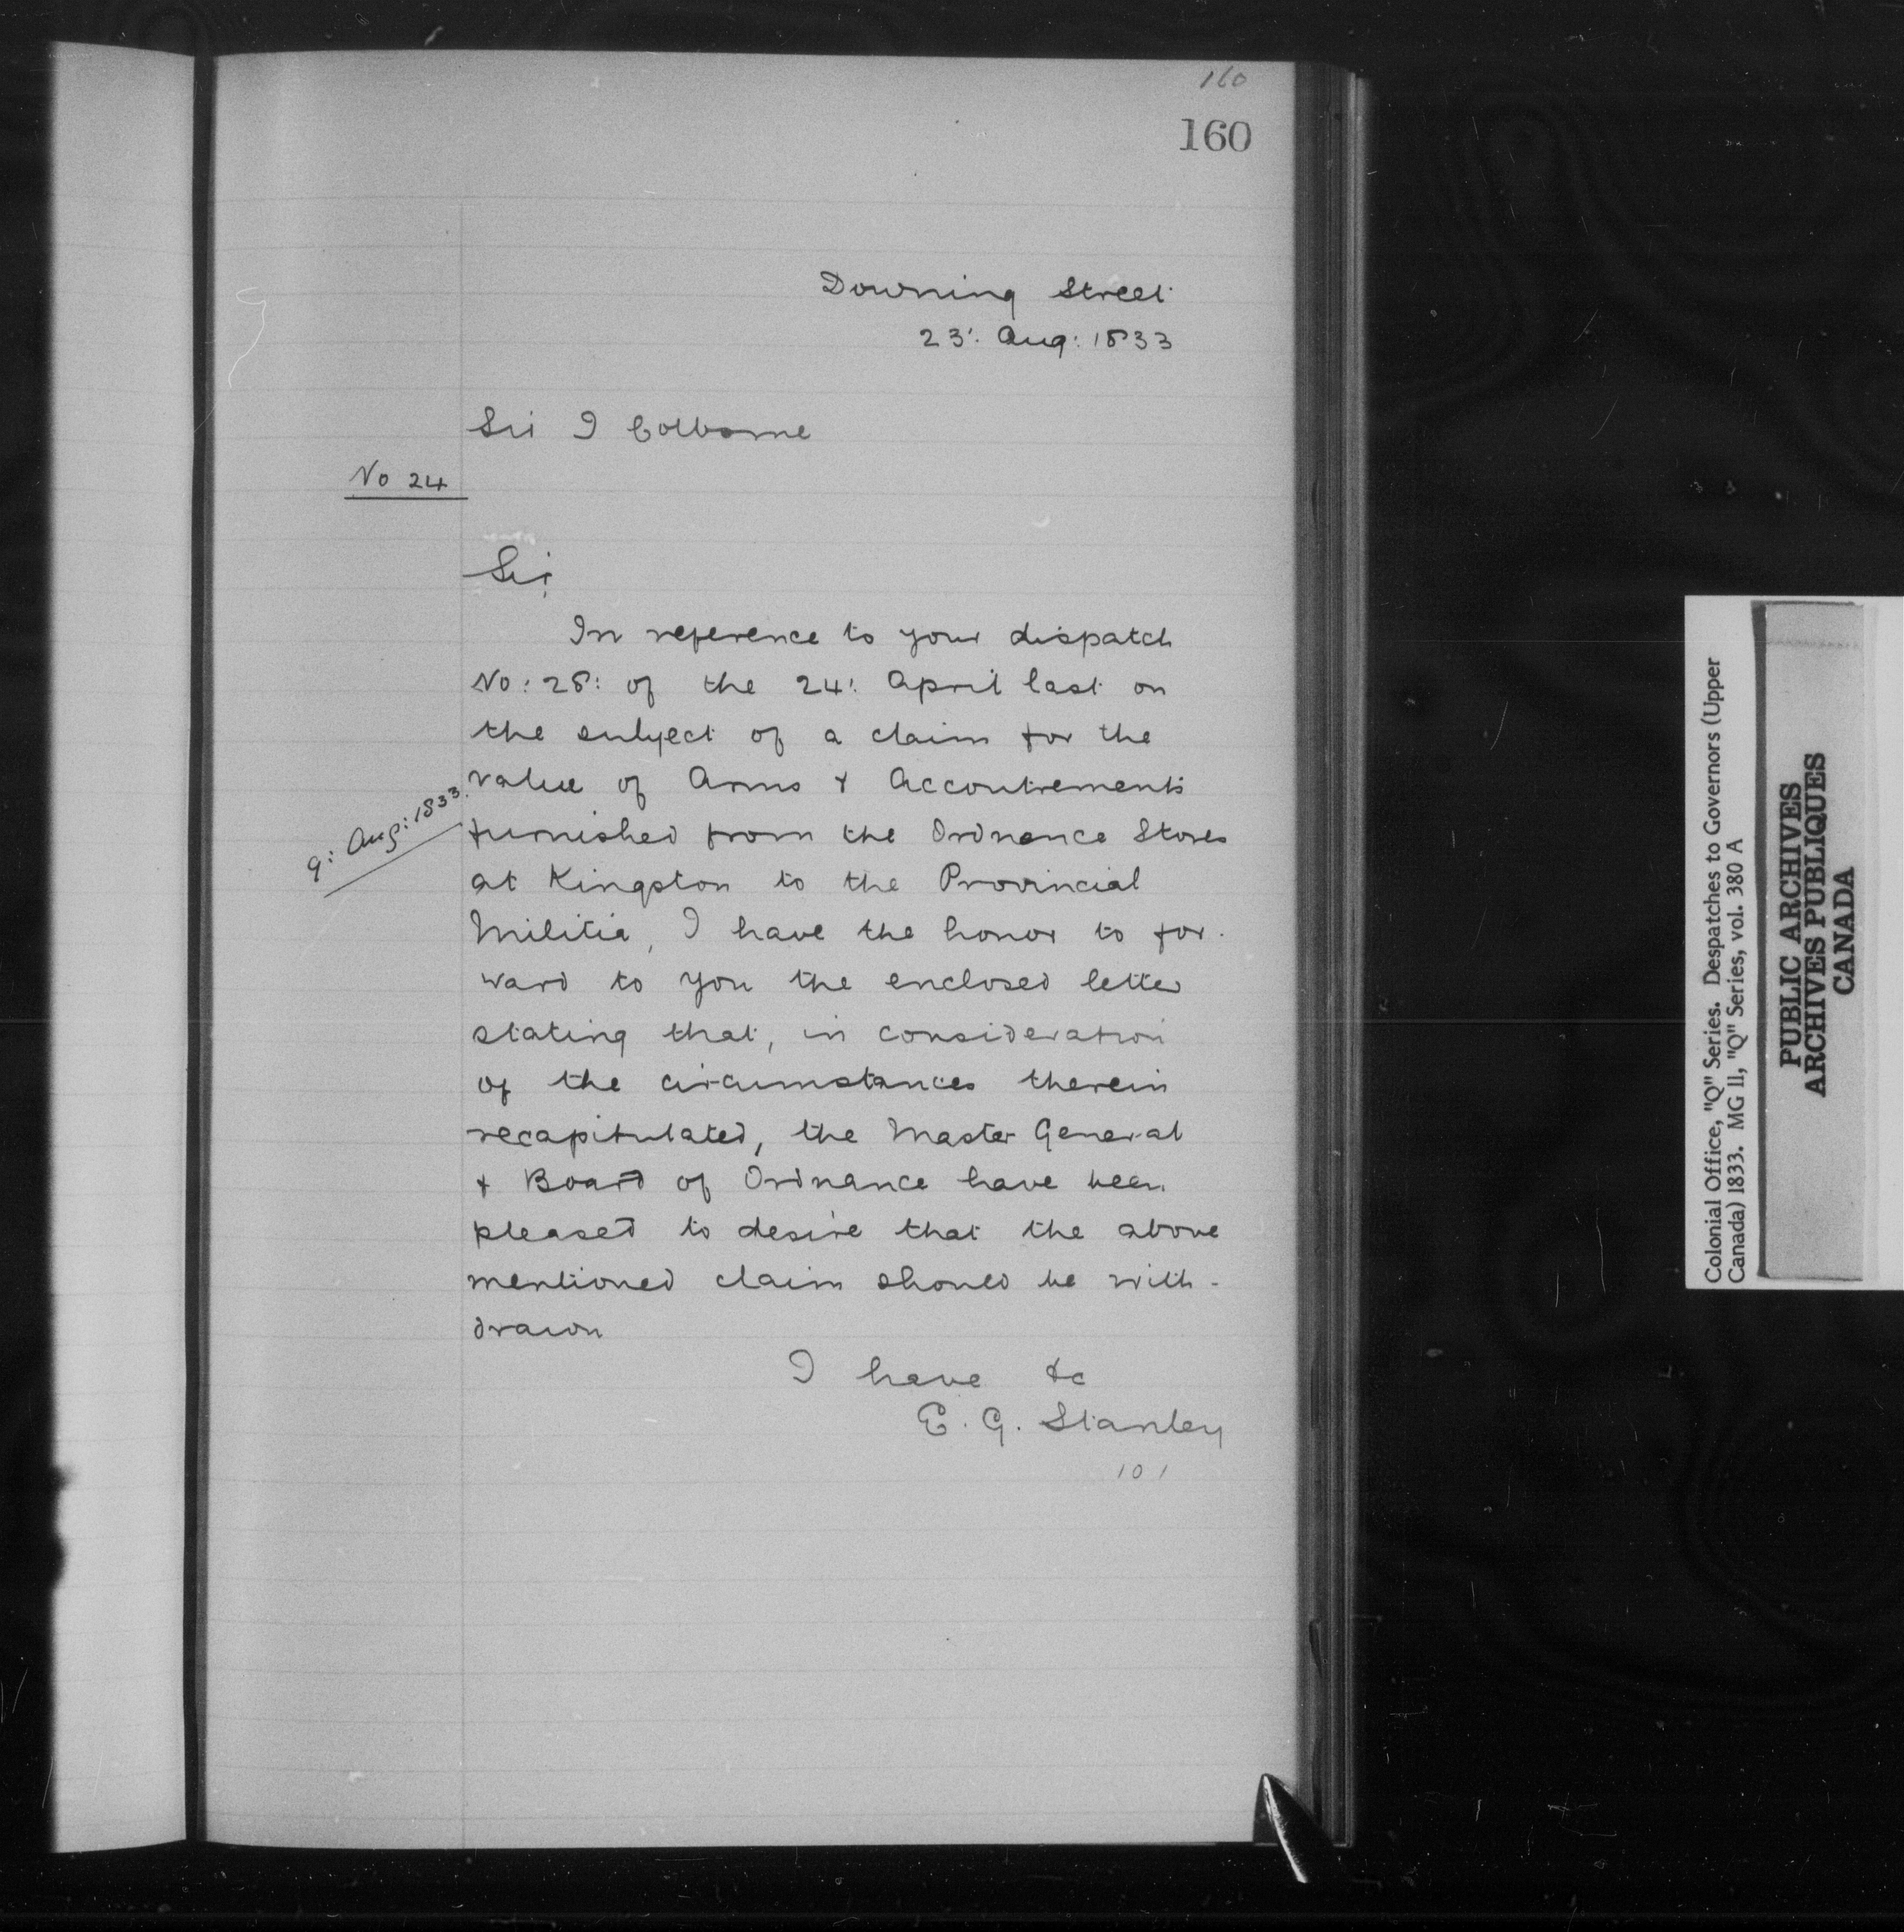 160
160
Downing Street
23: Aug: 1833
Sir J Colborne
No 24
Sir,
In reference to your dispatch
No: 28: of the 24: April last on
the subject of a claim for the
value of Arms & Accoutrements
9: Aug: 1833.
furnished from the Ordnance Stores
at Kingston to the Provincial
Militia, I have the honor to for-
ward to you the enclosed letter
stating that, in consideration
of the circumstances therein
recapitulated, the Master General
& Board of Ordnance have been
pleased to desire that the above
mentioned claim should be with-
drawn
I have &c
E. G. Stanley
101
Colonial Office, "Q" Series. Despatches to Governors (Upper
Canada) 1833. MG 11, "Q" Series, vol. 380 A
PUBLIC ARCHIVES
ARCHIVES PUBLIQUES
CANADA